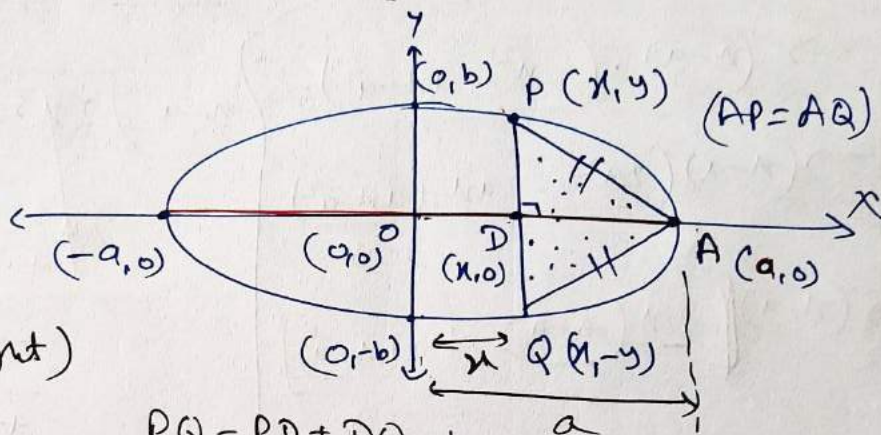 y
(0,b)
P (x,y)
(AP=AQ)
X
(-a,0)
(0,0) O
D
(x,0)
A (a,0)
(0,-b)
x
Q (x,-y)
a
PQ = PD + DQ